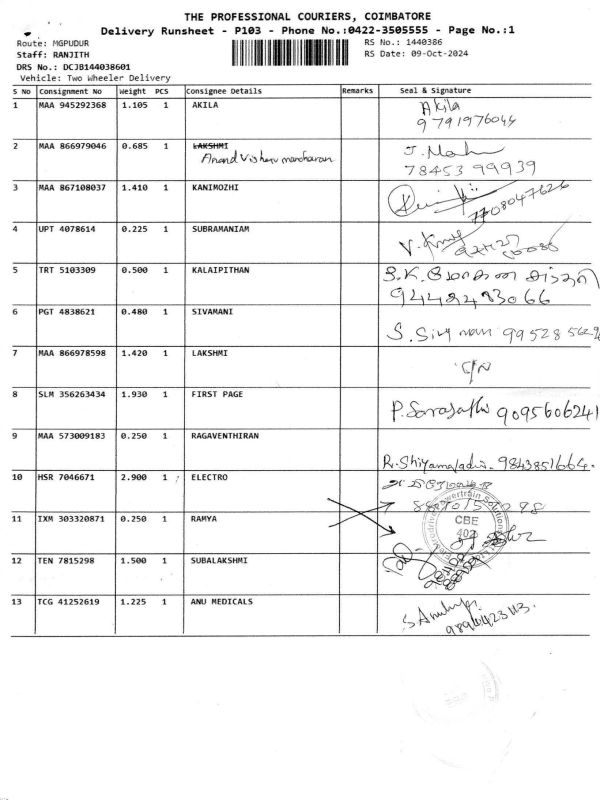 THE PROFESSIONAL COURIERS, COIMBATORE
Delivery Runsheet - P103 - Phone No.:0422-3505555 - Page No.:1
Route: MGPUDUR
RS No.: 1440386
Staff: RANJITH
RS Date: 09-Oct-2024
DRS No.: DCJB144038601
Vehicle: Two Wheeler Delivery
S No Consignment No Weight PCS Consignee Details Remarks Seal & Signature
1 MAA 945292368 1.105 1 AKILA Akila
9791976044
2 MAA 866979046 0.685 1 LAKSHMI
Anand Vishnu manoharan
78453 99939
3 MAA 867108037 1.410 1 KANIMOZHI
7708047626
4 UPT 4078614 0.225 1 SUBRAMANIAM
5 TRT 5103309 0.500 1 KALAIPITHAN
6 PGT 4838621 0.480 1 SIVAMANI
7 MAA 866978598 1.420 1 LAKSHMI
8 SLM 356263434 1.930 1 FIRST PAGE
9095606241
9 MAA 573009183 0.250 1 RAGAVENTHIRAN
R. Shiyamaladevi - 9843851664.
10 HSR 7046671 2.900 1 ELECTRO
11 IXM 303320871 0.250 1 RAMYA
CBE
402
12 TEN 7815298 1.500 1 SUBALAKSHMI
13 TCG 41252619 1.225 1 ANU MEDICALS